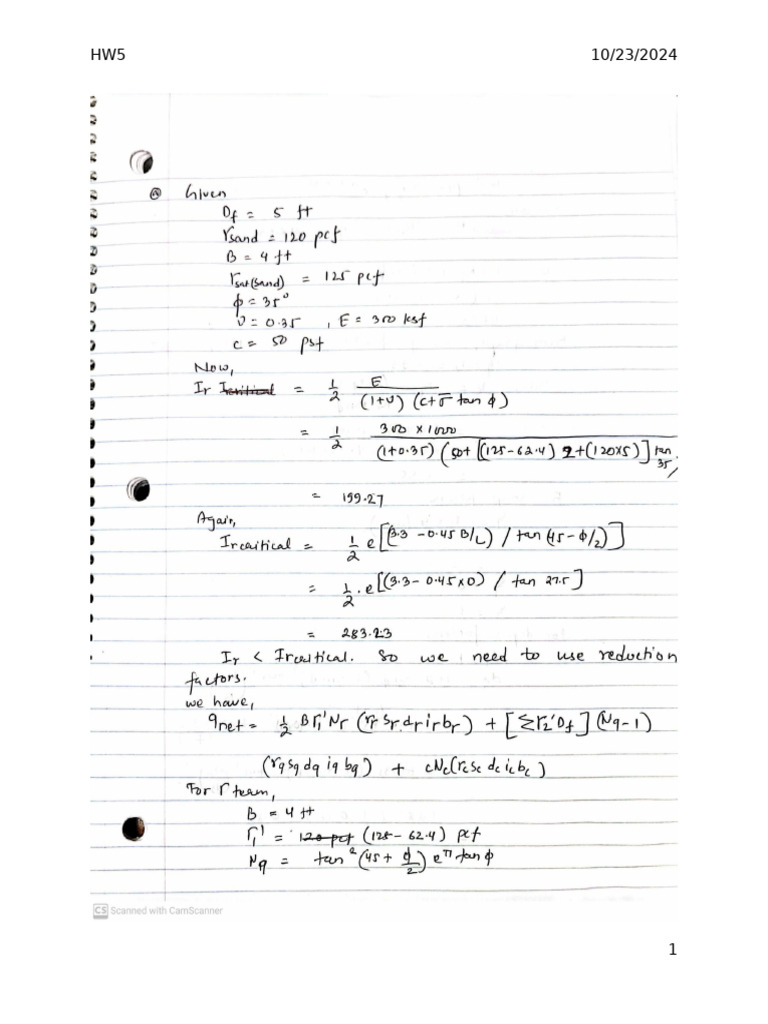 HW5 10/23/2024
ⓐ Given
Df = 5 ft
γsand = 120 pcf
B = 4 ft
γsat(sand) = 125 pcf
φ = 35°
υ = 0.35 , E = 300 ksf
c = 50 psf
Now,
Ir Icritical = 1/2 E / (1+υ) (c+σ̄ tan φ)
= 1/2 300 × 1000 / (1+0.35) (50+ [(125-62.4) 2+(120×5)] tan 35)
= 199.27
Again,
Ircritical = 1/2 e[(3.3 - 0.45 B/L) / tan (45 - φ/2)]
= 1/2 . e[(3.3 - 0.45×0) / tan 27.5]
= 283.23
Ir < Ircritical. So we need to use reduction
factors.
we have,
qnet = 1/2 Bγ1'Nγ (rγ sγ dγ iγ bγ) + [Σγ2'Df] (Nq-1)
(rq sq dq iq bq) + cNc(rc sc dc ic bc)
For γ team,
B = 4 ft
γ1' = 120 pcf (125 - 62.4) pcf
Nq = tan²(45 + φ/2) e^π tan φ
CS Scanned with CamScanner
1